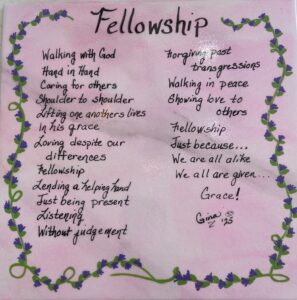 Fellowship
Walking with God
Hand in Hand
Caring for others
Shoulder to shoulder
Lifting one anothers lives
in his grace
Loving despite our
differences
Fellowship
Lending a helping hand
Just being present
Listening
Without judgement
Forgiving past
transgressions
Walking in peace
Showing love to
others
Fellowship
Just because...
We are all alike
We all are given...
Grace!
Gina
'25